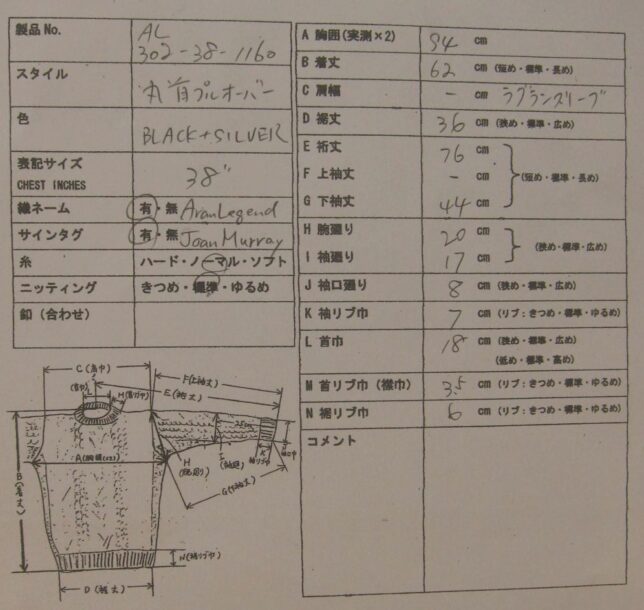 製品No.
AL
302-38-1160
スタイル
丸首プルオーバー
色
BLACK+SILVER
表記サイズ
CHEST INCHES
38"
織ネーム 有・無 AranLegend
サインタグ 有・無 Joan Murray
糸 ハード・ノーマル・ソフト
ニッティング きつめ・標準・ゆるめ
釦（合わせ）
A 胸囲(実測×2) 94 cm
B 着丈 62 cm (短め・標準・長め)
C 肩幅 - cm ラグランスリーブ
D 裾丈 36 cm (狭め・標準・広め)
E 裄丈 76 cm
F 上袖丈 - cm (短め・標準・長め)
G 下袖丈 44 cm
H 腕廻り 20 cm
(狭め・標準・広め)
I 袖廻り 17 cm
J 袖口廻り 8 cm (狭め・標準・広め)
K 袖リブ巾 7 cm (リブ：きつめ・標準・ゆるめ)
L 首巾 18 cm (狭め・標準・広め)
(低め・標準・高め)
M 首リブ巾（襟巾） 3.5 cm (リブ：きつめ・標準・ゆるめ)
N 裾リブ巾 6 cm (リブ：きつめ・標準・ゆるめ)
コメント
C(肩巾)
F(上袖丈)
E(裄丈)
L
(首巾)
M(首リブ巾)
A(胸囲x2)
B(着丈)
H
(腕廻り)
I
(袖廻)
K
袖リブ巾
J
袖口巾
G(下袖丈)
N(裾リブ巾)
D (裾丈)